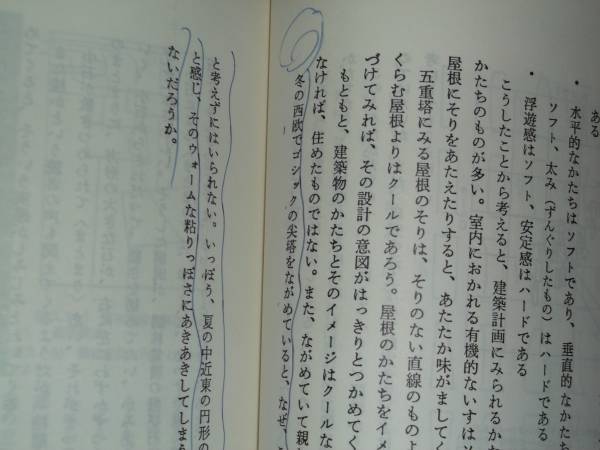 ある
• 水平的なかたちはソフトであり、垂直的なかた
ソフト、太み（ずんぐりしたもの）はハードである
• 浮遊感はソフト、安定感はハードである
こうしたことから考えると、建築計画にみられるか
かたちのものが多い。室内におかれる有機的ないすは
屋根にそりをあたえたりすると、あたたか味がまして
五重塔にみる屋根のそりは、そりのない直線のものよ
くらむ屋根よりはクールであろう。屋根のかたちをイメ
づけてみれば、その設計の意図がはっきりとつかめてく
もともと、建築物のかたちとそのイメージはクールな
なければ、住めたものではない。また、ながめていて親
冬の西欧でゴシックの尖塔をながめていると、なぜ、
と考えずにはいられない。いっぽう、夏の中近東の円形の
と感じ、そのウォームな粘りっぽさにあきあきしてしまう
ないだろうか。